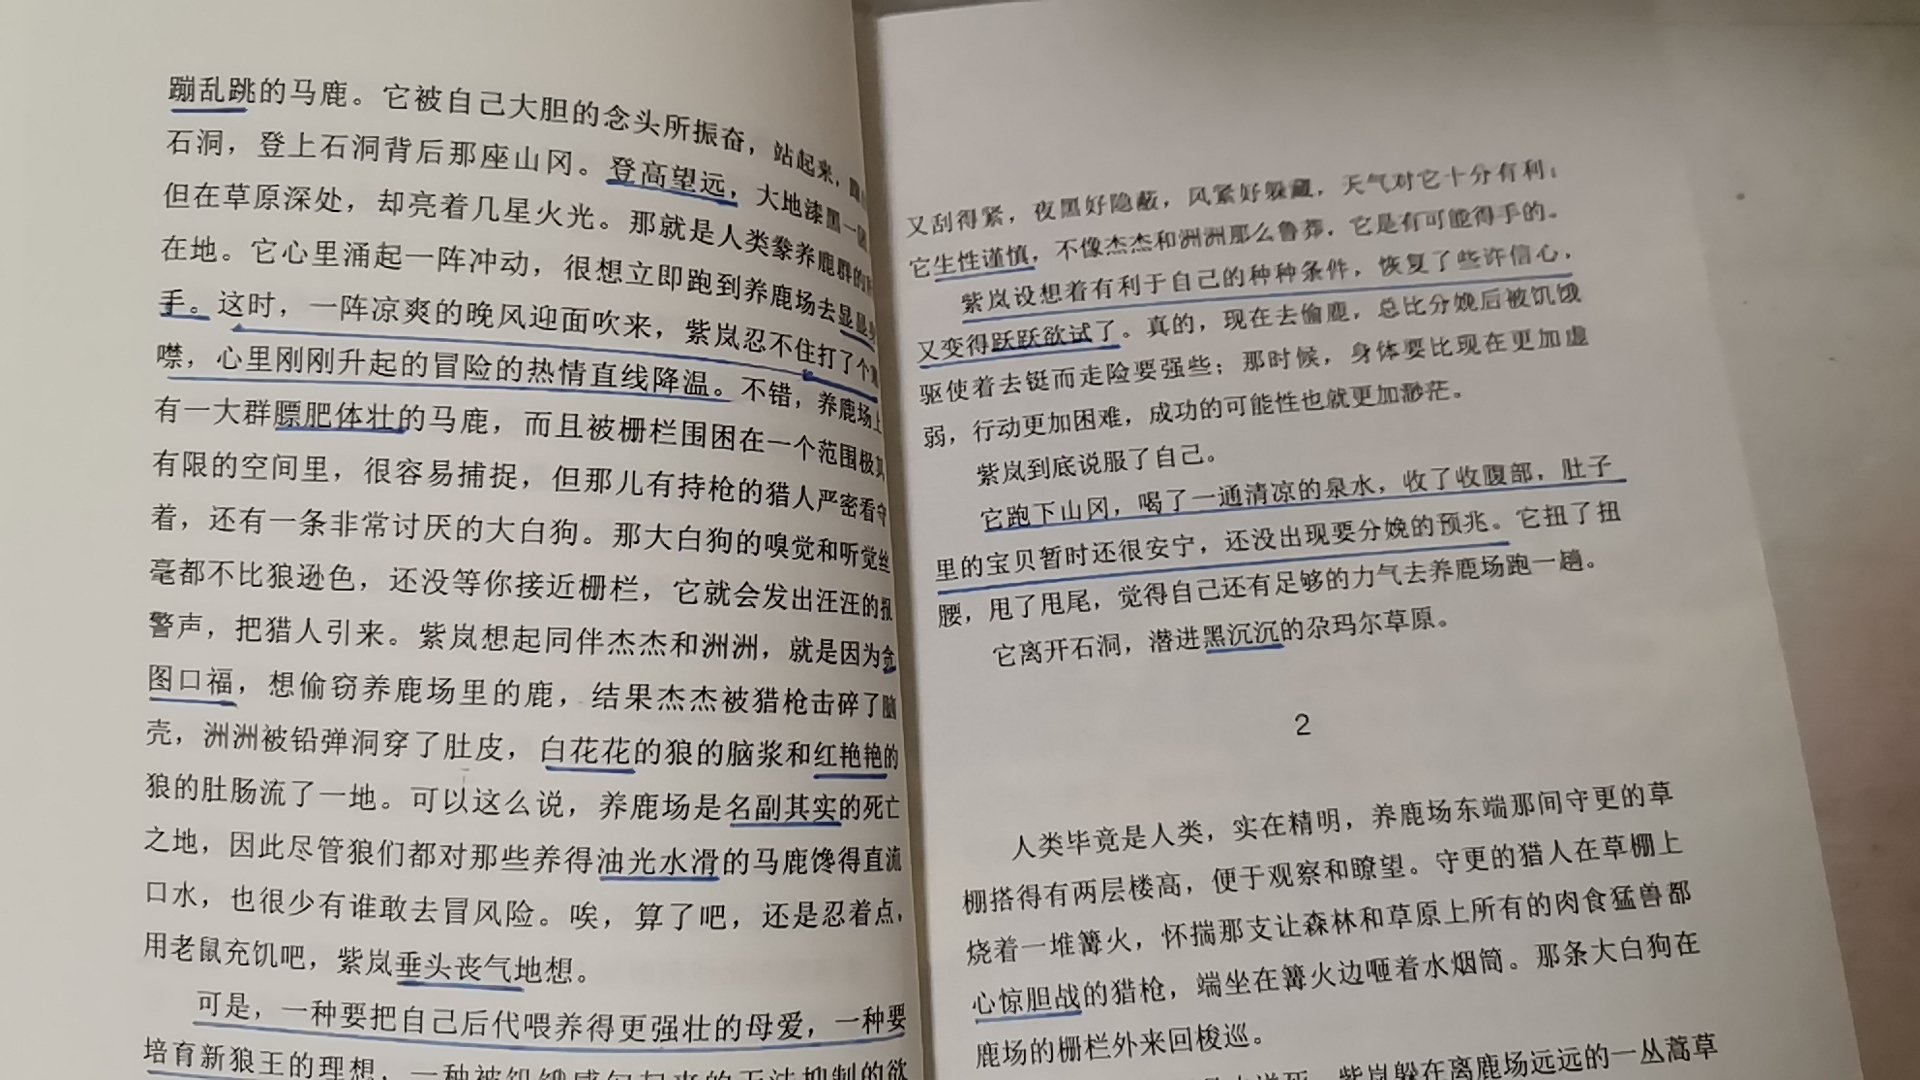 蹦乱跳的马鹿。它被自己大胆的念头所振奋，站起来，
石洞，登上石洞背后那座山冈。登高望远，大地漆黑一团
但在草原深处，却亮着几星火光。那就是人类豢养鹿群的
在地。它心里涌起一阵冲动，很想立即跑到养鹿场去显显身
手。这时，一阵凉爽的晚风迎面吹来，紫岚忍不住打了个寒
噤，心里刚刚升起的冒险的热情直线降温。不错，养鹿场上
有一大群膘肥体壮的马鹿，而且被栅栏围困在一个范围极其
有限的空间里，很容易捕捉，但那儿有持枪的猎人严密看守
着，还有一条非常讨厌的大白狗。那大白狗的嗅觉和听觉丝
毫都不比狼逊色，还没等你接近栅栏，它就会发出汪汪的报
警声，把猎人引来。紫岚想起同伴杰杰和洲洲，就是因为贪
图口福，想偷窃养鹿场里的鹿，结果杰杰被猎枪击碎了脑
壳，洲洲被铅弹洞穿了肚皮，白花花的狼的脑浆和红艳艳的
狼的肚肠流了一地。可以这么说，养鹿场是名副其实的死亡
之地，因此尽管狼们都对那些养得油光水滑的马鹿馋得直流
口水，也很少有谁敢去冒风险。唉，算了吧，还是忍着点，
用老鼠充饥吧，紫岚垂头丧气地想。
可是，一种要把自己后代喂养得更强壮的母爱，一种要
培育新狼王的理想，一种被饥饿感勾起来的无法抑制的欲
又刮得紧，夜黑好隐蔽，风紧好躲藏，天气对它十分有利；
它生性谨慎，不像杰杰和洲洲那么鲁莽，它是有可能得手的。
紫岚设想着有利于自己的种种条件，恢复了些许信心，
又变得跃跃欲试了。真的，现在去偷鹿，总比分娩后被饥饿
驱使着去铤而走险要强些；那时候，身体要比现在更加虚
弱，行动更加困难，成功的可能性也就更加渺茫。
紫岚到底说服了自己。
它跑下山冈，喝了一通清凉的泉水，收了收腹部，肚子
里的宝贝暂时还很安宁，还没出现要分娩的预兆。它扭了扭
腰，甩了甩尾，觉得自己还有足够的力气去养鹿场跑一趟。
它离开石洞，潜进黑沉沉的尕玛尔草原。
2
人类毕竟是人类，实在精明，养鹿场东端那间守更的草
棚搭得有两层楼高，便于观察和瞭望。守更的猎人在草棚上
烧着一堆篝火，怀揣那支让森林和草原上所有的肉食猛兽都
心惊胆战的猎枪，端坐在篝火边咂着水烟筒。那条大白狗在
鹿场的栅栏外来回梭巡。
紫岚躲在离鹿场远远的一丛蒿草